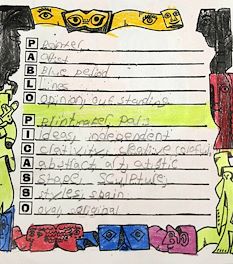 P Painter
A Artist
B Blue period
L Lines
O Opinion
P printmaker, Paris
I Ideas, independent
C creative colorful
A abstract art, artistic
S shape, sculpture
S styles, Spain
O oval, original